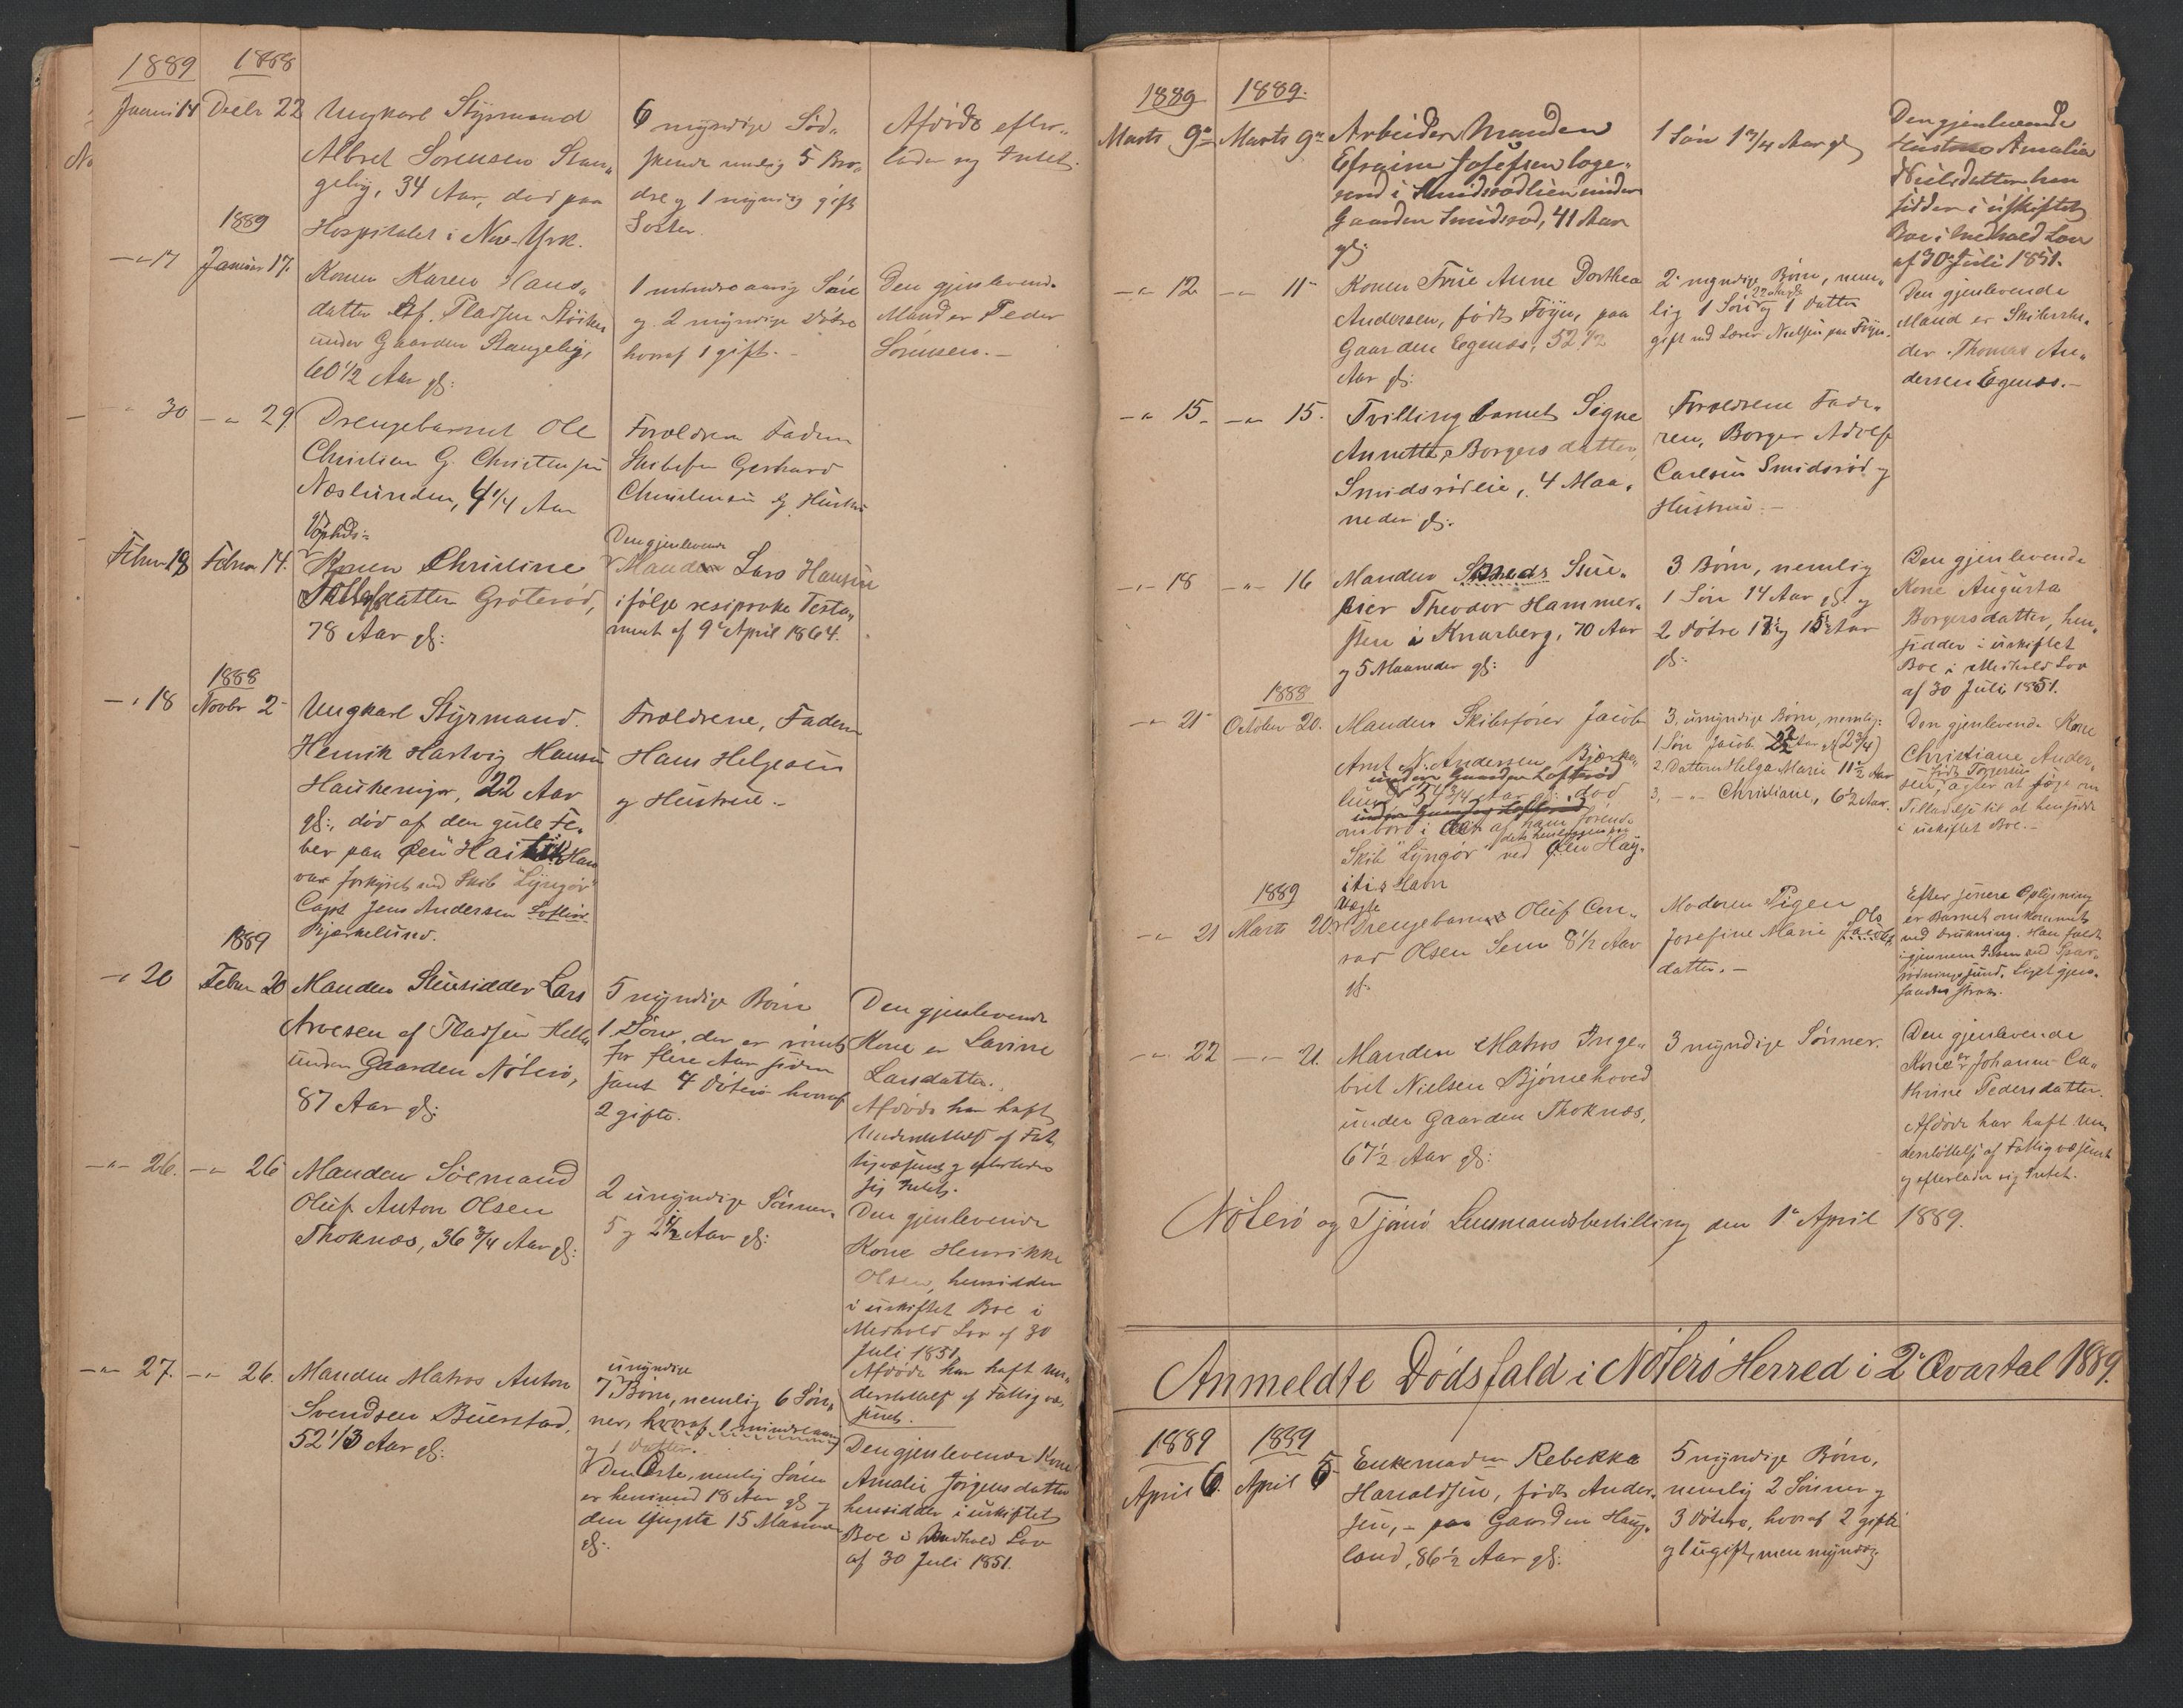 1889
1888
Januar 14
Decbr 22
Ungkarl Styrmand
Albret Sørensen Stan„
gebÿ, 34 Aar, død paa
Hospitalet i New-York.
6 myndige Sød„
skende nemlig 5 Brø„
dre og 1 myndig gift
Søster.
Afdøde efter„
lader sig Intet.
1889
-"- 17
Januar 17.
Konen Karen Hans„
datter af Pladsen
under Gaarden Stangebÿ,
60 1/2 Aar gl:
1 mindreaarig Søn
og 2 myndige Døtre
hvoraf 1 gift. -
Den gjenlevende
Mand er Peder
Sørensen. -
-"- 30
-"- 29
Drengebarnet Ole
Christian G. Christensen
Næslunden, 4 1/4 Aar
Forældrene Faderen
Gerhard
Christensen og Hustru
Februar 18
Februar 14.
Konen Christine
datter Grøterød,
78 Aar gl:
Den gjenlevende
Mand Lars Hansen
ifølge resiproke Testa„
ment af 9de April 1864.
1888
-"- 18
Novbr 2
Ungkarl Styrmand
Henrik Hartvig Hansen
22 Aar
gl:, død af den gule Fe„
ber paa Øen Haiti. Han
var forhyret med Skib "Lyngør"
Capt Jens Andersen
Bjerkelund.
Forældrene, Faderen
Hans Helgesen
og Hustrue. -
1889
-"- 20
Februar 20
Manden Huusidder Lars
Arvesen af Pladsen Hella
under Gaarden Nøterø,
87 Aar gl:
5 myndige Børn
1 Søn, der er reist
for flere Aar siden
samt 4 Døtre hvoraf
2 gifte.
Den gjenlevende
Kone er Lavine
Larsdatter.
Afdøde har haft
Understøttelse af Fat„
tigvæsenet og efterlader
sig Intet.
-"- 26.
-"- 26
Manden Sømand
Oluf Anton Olsen
Thoknæs, 36 3/4 Aar gl:
2 umyndige Sønner
5 og 2 1/2 Aar gl:
Den gjenlevende
Kone Henrikke
Olsen, hensidder
i uskiftet Boe i
Medhold Lov af 30
Juli 1851.
Afdøde har haft un„
derstøttelse af Fattigvæ„
senet.
-"- 27.
-"- 26.
Manden Matros Anton
Svendsen Buerstad,
52 1/3 Aar gl:
umyndige
7 Børn, nemlig 6 Søn„
ner, hvoraf 1 mindreaarig
og 1 Datter.
Den Ældste, nemlig Sønnen
er henimod 18 Aar gl og
den Yngste 15 Maaneder
gl:
Den gjenlevende Kone
Amalie Jørgensdatter
hensidder i uskiftet
Boe i Medhold Lov
af 30 Juli 1851.
1889
1889.
Marts 9de
Marts 9de
Arbeider Manden
Efraim Josefsen loge„
rend i Smidsrødlien under
Gaarden Smidsrød, 41 Aar
gl:
1 Søn 1 3/4 Aar gl
Den gjenlevende
Hustrue Amalia
Nielsdatter hen
sidder i uskiftet
Boe i Medhold Lov
af 30de Juli 1851.
-"- 12
-"- 11
Konen Frue Anne Dorthea
Andersen, født Føyn, paa
Gaarden Egenæs, 52 1/2
Aar gl:
2 myndige Børn, nem„
lig 1 Søn 22 Aar gl og 1 Datter
gift med Lærer Nielsen paa Føyn.
Den gjenlevende
Mand er Skibsrhe„
der Thomas An„
dersen Egenæs. -
-"- 15.
-"- 15.
Tvillingbarnet Signe
Annette Borgersdatter,
Smidsrødlie, 4 Maa„
neder gl:
Forældrene Fade„
ren, Borger Adolf
Carlsen Smidsrød og
Hustrue. -
-"- 18
-"- 16
Manden Huus„
eier Theodor Hammer„
sten i Knarberg, 70 Aar
og 5 Maaneder gl:
3 Børn, nemlig
1 Søn 14 Aar gl: og
2 Døtre 18 og 15 1/2 Aar
gl:
Den gjenlevende
Kone Augusta
Borgersdatter, hen„
sidder i uskiftet
Boe i Medhold Lov
af 30 Juli 1851.
1888
-"- 21
October 20.
Manden Skibsfører Jacob
Arnt N. Andersen, Bjerke„
lund, 34 3/4 Aar gl: død
ombord i det af ham førende
Skib "Lyngør" ved Øen Hay„
itis Havn
3, umyndige Børn, nemlig:
1. Søn Jacob 2 3/4 Aar
2. Datteren Helga Marie 11 1/2 Aar
3, -"- Christiane, 6 1/2 Aar.
Den gjenlevende Kone
Christiane Ander„
sen, født Torgersen
agter at søge om
Tilladelse til at hensidde
i uskiftet Boe. -
1889
-"- 21
Marts 20
Drengebarnet Oluf Con„
rad Olsen Sem 8 1/2 Aar
gl.
Moderen Pigen
Josefine Marie Ols
datter. -
Efter senere Oplysning
er Barnet omkommet
ved Drukning. Han faldt
igjennem Isen ved
sund. Liget gjen„
fandtes strax.
-"- 22
-"- 21.
Manden Matros Inge„
bret Nielsen Bjørnehoved
under Gaarden Thoknæs,
67 1/2 Aar gl:
3 myndige Sønner.
Den gjenlevende
Kone er Johanne Ca„
thrine Pedersdatter.
Afdøde har haft Un„
derstøttelse af Fattigvæsenet
og efterlader sig Intet.
Nøterø og Tjømø Lensmandsbestilling den 1ste April 1889.
Anmeldte Dødsfald i Nøterø Herred i 2det Qvartal 1889.
1889
1889
April 6.
April 5
Enkemadam Rebekka
Haraldsen, født Ander„
sen, - paa Gaarden Haug„
land, 86 1/2 Aar gl:
5 myndige Børn,
nemlig 2 Sønner og
3 Døtre, hvoraf 2 gifte
og 1 ugift, men myndig